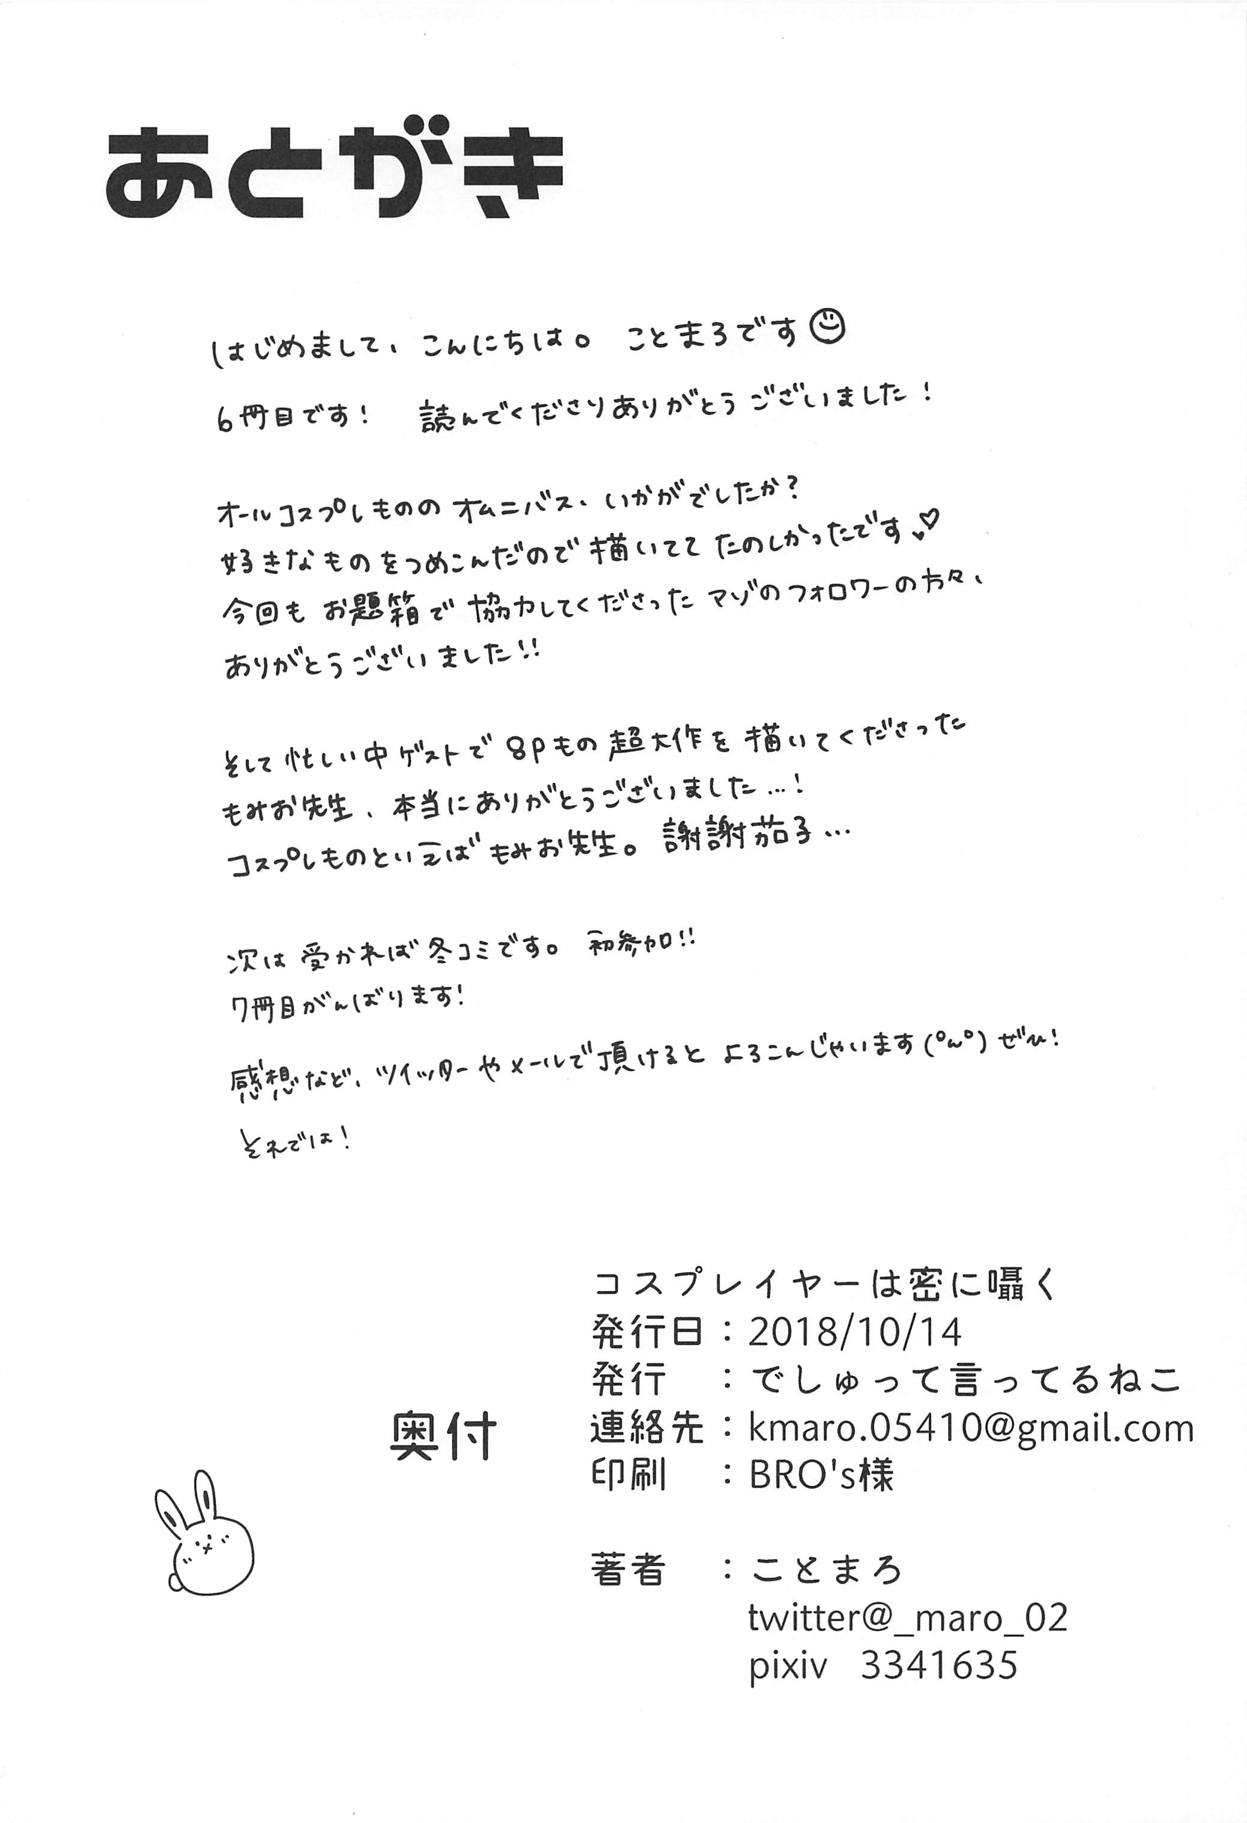 あとがき
はじめまして、こんにちは。 ことまろです
6冊目です！ 読んでくださりありがとうございました！
オールコスプレもののオムニバス、いかがでしたか？
好きなものをつめこんだので描いててたのしかったです♡
今回もお題箱で協力してくださったマゾのフォロワーの方々、
ありがとうございました!!
そして忙しい中ゲストで8Pもの超大作を描いてくださった
もみお先生、本当にありがとうございました…！
コスプレものといえばもみお先生。謝謝茄子…
次は受かれば冬コミです。 初参加!!
7冊目がんばります！
感想など、ツイッターやメールで頂けるとよろこんじゃいます(°ω°)ぜひ！
それでは！
コスプレイヤーは密に囁く
発行日：2018/10/14
発行 ：でしゅって言ってるねこ
奥付
連絡先：kmaro.05410@gmail.com
印刷 ：BRO's様
著者 ：ことまろ
twitter@_maro_02
pixiv 3341635